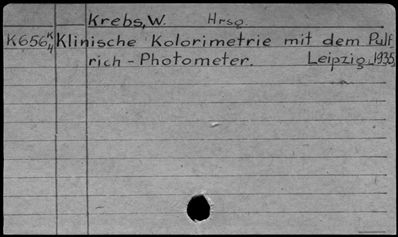 Krebs, W. Hrsg.
K656 K/4 Klinische Kolorimetrie mit dem Pulf
rich-Photometer. Leipzig, 1935.